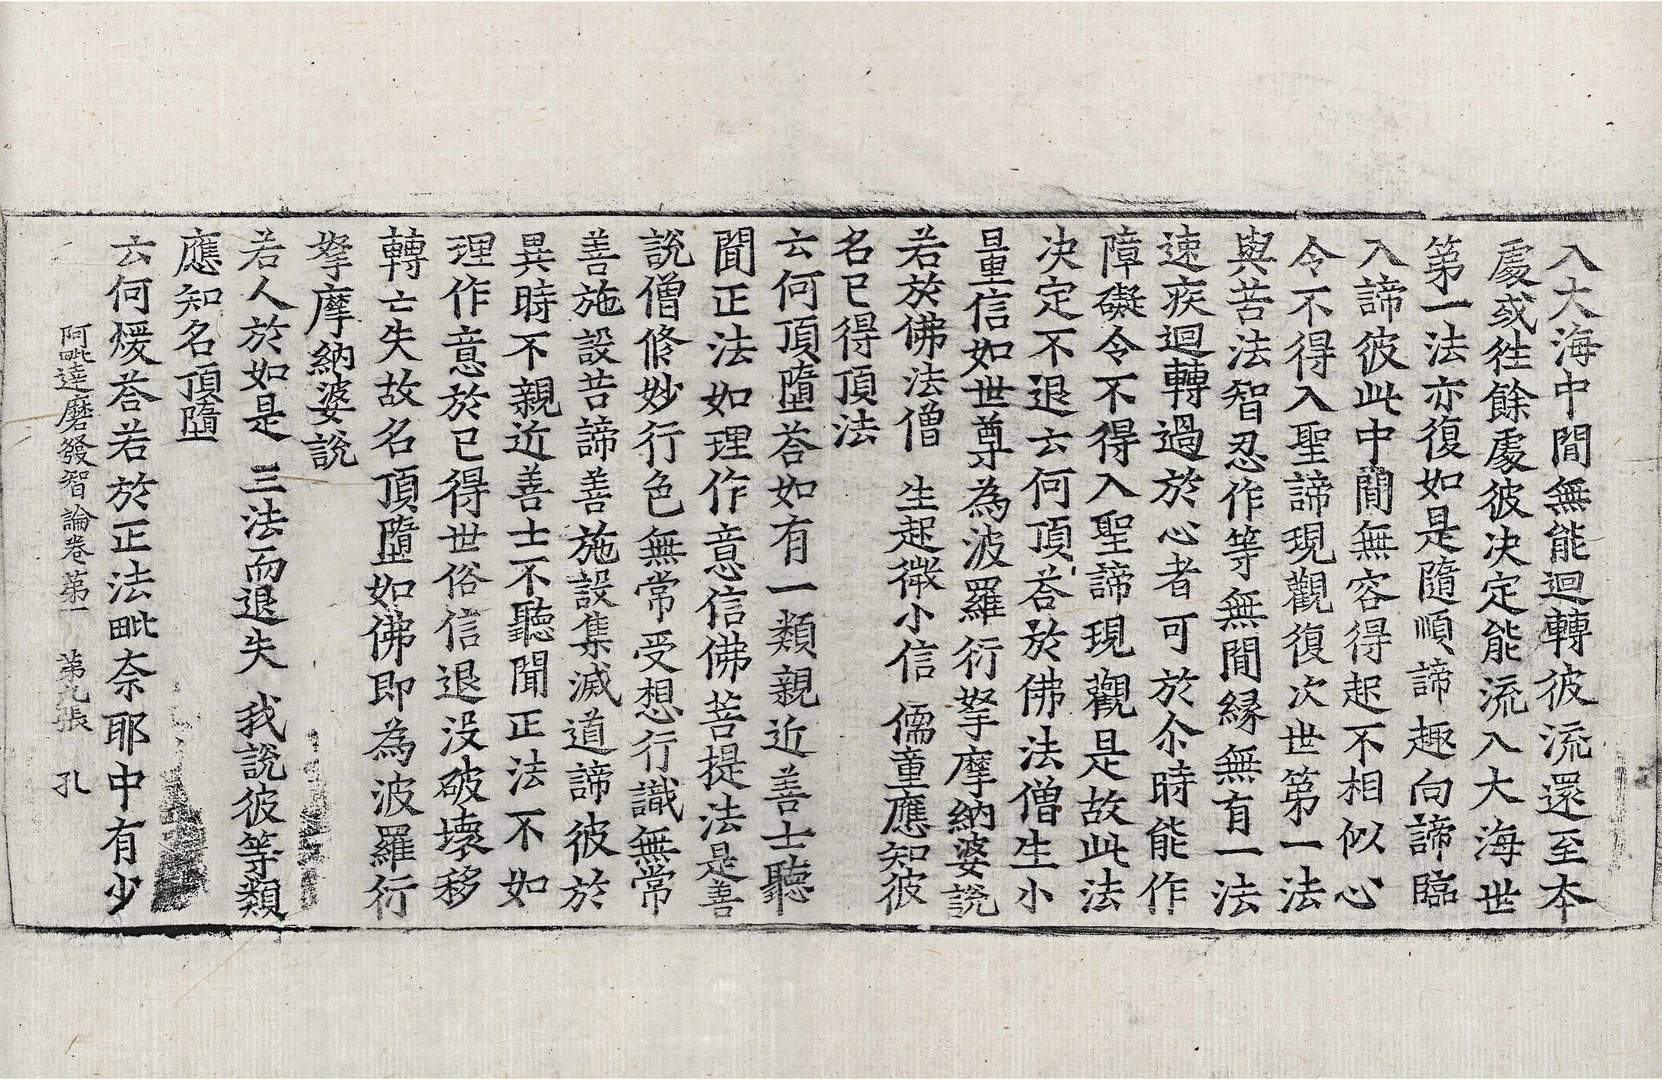 入大海中閒無能迴轉彼流還至本
處或往餘處彼决定能流入大海世
第一法亦復如是隨順諦趣向諦臨
入諦彼此中閒無容得起不相似心
令不得入聖諦現觀復次世第一法
與苦法智忍作等無閒緣無有一法
速疾迴轉過於心者可於尒時能作
障礙令不得入聖諦現觀是故此法
决定不退云何頂荅於佛法僧生小
量信如世尊為波羅衍拏摩納婆說
若於佛法僧 生起微小信 儒童應知彼
名已得頂法
云何頂墮荅如有一類親近善士聽
聞正法如理作意信佛菩提法是善
說僧修妙行色無常受想行識無常
善施設苦諦善施設集滅道諦彼於
異時不親近善士不聽聞正法不如
理作意於已得世俗信退没破壞移
轉亡失故名頂墮如佛即為波羅衍
拏摩納婆說
若人於如是 三法而退失 我說彼等類
應知名頂墮
云何煖荅若於正法毗奈耶中有少
阿毗達磨發智論卷第一 第九張 孔